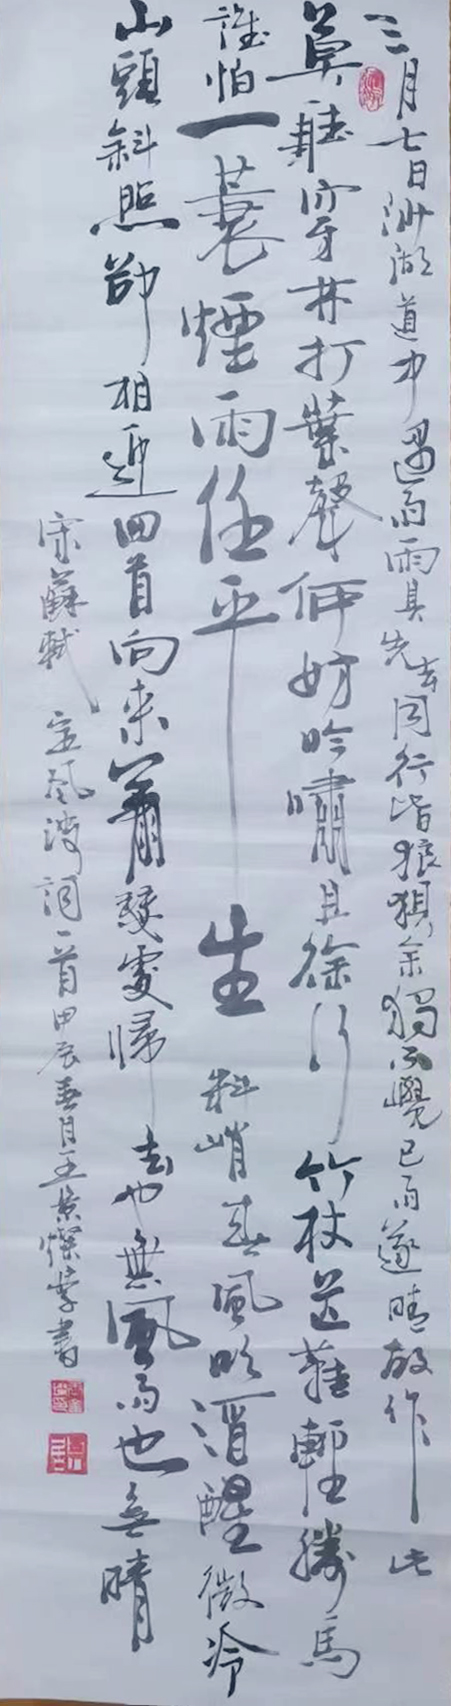 三月七日沙湖道中遇雨雨具先去同行皆狼狽余獨不覺已而遂晴故作此
莫聽穿林打葉聲何妨吟嘯且徐行竹杖芒鞋輕勝馬
誰怕一蓑煙雨任平生料峭春風吹酒醒微冷
山頭斜照卻相迎回首向來蕭瑟處歸去也無風雨也無晴
宋蘇軾 定風波詞一首甲辰春月王景燦學書